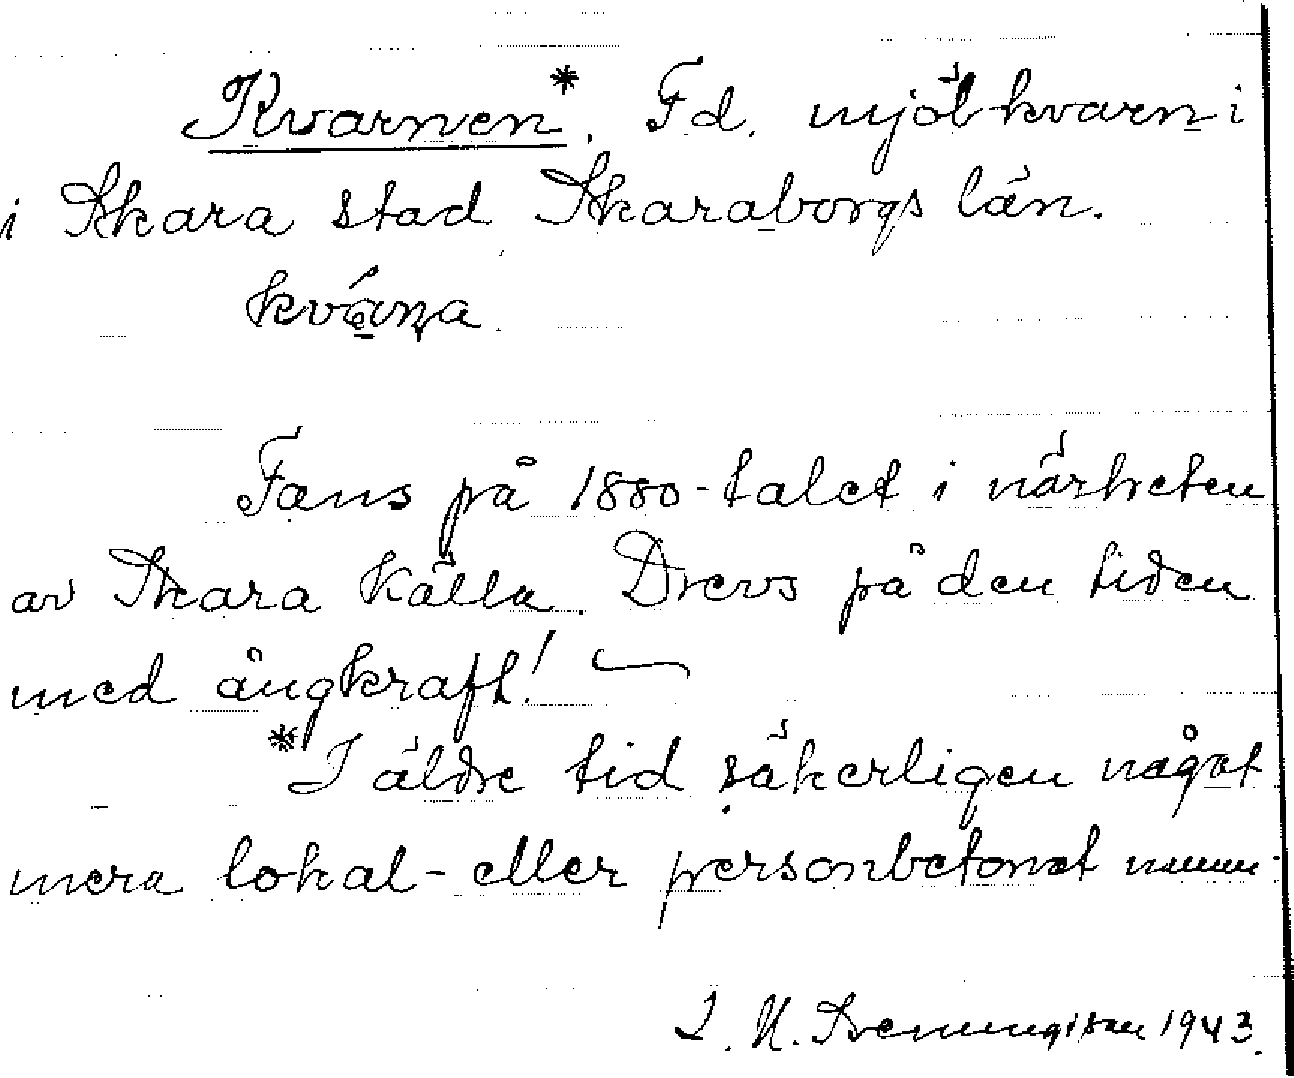 Kvarnen*. F.d. mjölkvarn i
i Skara stad, Skaraborgs län.
Fans på 1880-talet i närheten
av Skara Källa. Drevs på den tiden
med ångkraft!
*I äldre tid säkerligen något
mera lokal- eller personbetonat namn.
1943.